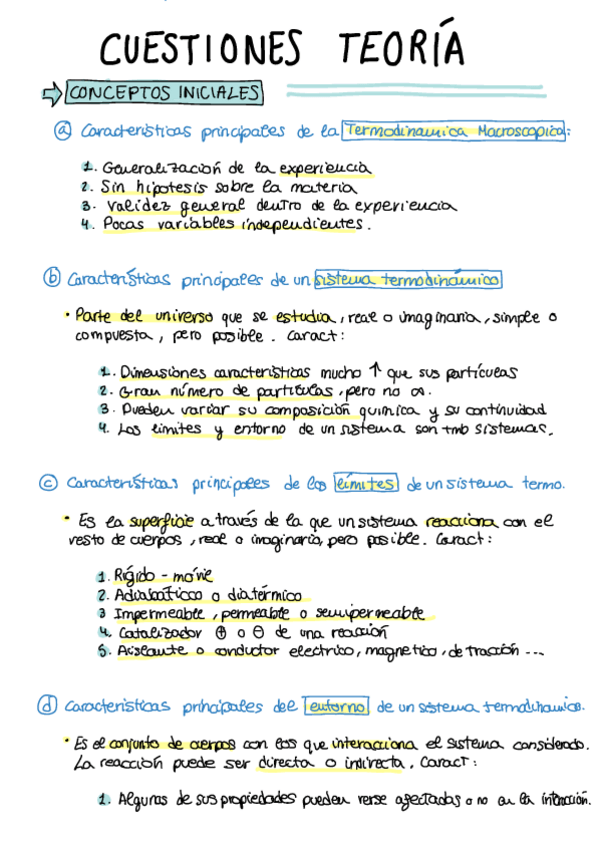 CUESTIONES TEORÍA
⇨ CONCEPTOS INICIALES
ⓐ Características principales de la Termodinámica Macroscópica:
1. Generalización de la experiencia
2. Sin hipotesis sobre la materia
3. Validez general dentro de la experiencia
4. Pocas variables independientes.
ⓑ Características principales de un sistema termodinámico
· Parte del universo que se estudia, real o imaginaria, simple o
compuesta, pero posible. Caract:
1. Dimensiones características mucho ↑ que sus partículas
2. Gran número de partículas, pero no ∞.
3. Pueden variar su composición quimica y su continuidad
4. Los limites y entorno de un sistema son tmb sistemas.
ⓒ Características principales de los límites de un sistema termo.
· Es la superficie a través de la que un sistema reacciona con el
resto de cuerpos, real o imaginaria, pero posible. Caract:
1. Rígido - móvil
2. Adiabático o diatérmico
3 Impermeable, permeable o semipermeable
4. Catalizador ⊕ o ⊖ de una reacción
5. Aislante o conductor electrico, magnetico, de tracción ...
ⓓ Características principales del entorno de un sistema termodinamico.
· Es el conjunto de cuerpos con los que interacciona el sistema considerado.
La reacción puede ser directa o indirecta. Caract:
1. Algunas de sus propiedades pueden verse afectadas o no en la interacción.